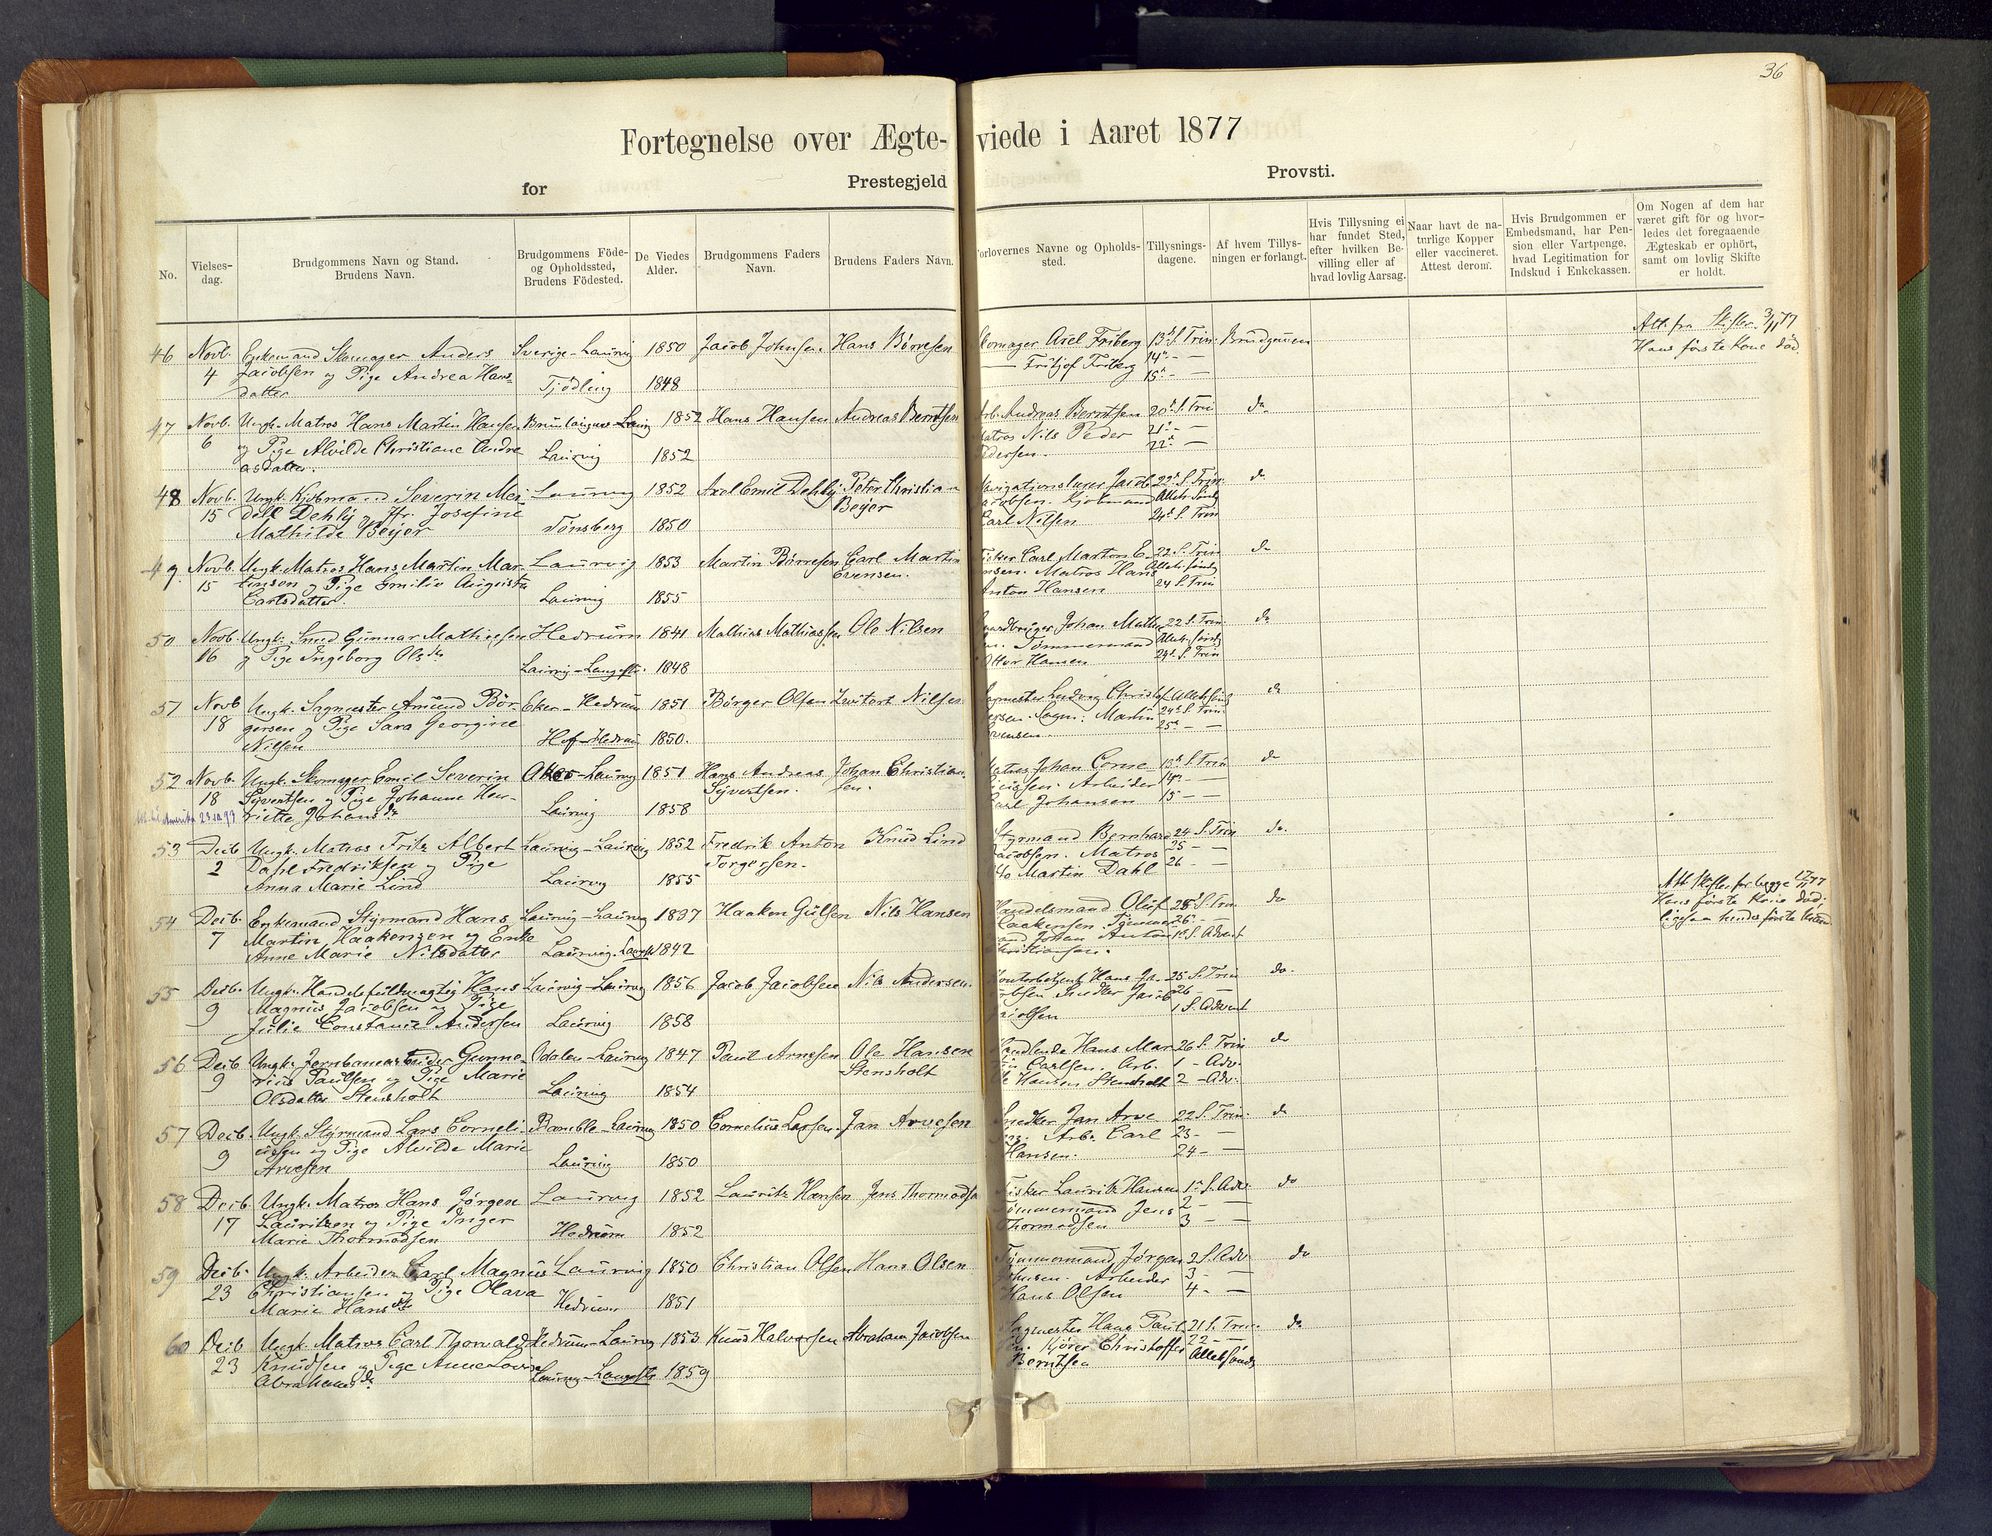 36
Fortegnelse over Ægteviede i Aaret 1877
for Prestegjeld Provsti.
No. Vielsesdag. Brudgommens Navn og Stand. Brudens Navn. Brudgommens Föde- og Opholdssted, Brudens Födested. De Viedes Alder. Brudgommens Faders Navn. Brudens Faders Navn. Forlovernes Navne og Opholdssted. Tillysningsdagene. Af hvem Tillysningen er forlangt. Hvis Tillysning ei har fundet Sted, efter hvilken Bevilling eller af hvad lovlig Aarsag. Naar havt de naturlige Kopper eller vaccineret. Attest derom. Hvis Brudgommen er Embedsmand, har Pension eller Vartpenge, hvad Legitimation for Indskud i Enkekassen. Om Nogen af dem har været gift för og hvorledes det foregaaende Ægteskab er ophört, samt om lovlig Skifte er holdt.
46 Novb. Enkemand Skomager Anders Sverige-Laurvig 1850 Jacob Johnsen. Hans Børresen Skomager Axel Friberg 13de S. Trin Brudgummen Att. fra Skifter. 3/11 77
4 Jacobsen og Pige Andrea Hans- — Fritjof Friberg 14de — — Hans første Kone død.
datter Tjødling 1848 15de — —
47 Novb. Ungk. Matros Hans Martin Hansen Brunlaugnes-Laurvig 1852 Hans Hansen Andreas Berntsen Arb. Andreas Berntsen 20de S. Tri do
6 og Pige Alvilde Christiane Andre Matros Nils Peder 21de — —
asdatter. Laurvig 1852 Pedersen. 22de —
48 Novb. Ungk. Kjøbmand Severin Mei Laurvig 1852 Axel Emil Dehly Peter Christian Navigationslærer Jacob 22de S. Trin do
15 dell Dehly og Jfr. Josefine Beyer Jacobsen. Kjøbmand Alleh. Sønd
Mathilde Beyer Tønsberg 1850 Carl Nilsen 24de S. Trin
49 Novb. Ungk. Matros Hans Martin Mar Laurvig 1853 Martin Børresen Carl Martin Fisker Carl Martin E 22 S. Trin do
15 tinsen og Pige Emilie Augusta Evensen. vensen. Matros Hans Alleh. sønd
Carlsdatter. Laurvig 1855 Anton Hansen 24 S. Trin
50 Novb. Ungk. Smed Gunnar Mathisen Hedrum 1841 Mathias Mathiassen Ole Nilsen Gaardbruger Johan Math 22 S. Trin do
16 og Pige Ingeborg Olsdtr Tømmermand Alleh. sønd
Laurvig-Langestr. 1848 Ottar Hansen 24de S. Trin
51 Novb Ungk. Sagmester Amund Bør Eker-Hedrum 1851 Børger Olsen Nilsen Sagmester Ludvig Christof Alleh sønd do
18 gersen og Pige Sara Georgine fersen. Martin 24de S. Trin
Nilsen Hof-Hedrum 1850. Evensen 25de —
52 Novb. Ungk. Skomager Emil Severin Aker-Laurvig 1851 Hans Andreas Johan Christian Matros Johan 13de S. Trin do
18 Syvertsen og Pige Johanne Hen- Syvertsen. sen. Arbeider 14de — —
Amerika riette Johansdtr Laurvig 1858 Carl Johansen 15 — —
53 Decb Ungk. Matros Fritz Albert Laurvig-Laurvig 1852 Fredrik Anton Knud Lind Styrmand Bernhard 24 S. Trin do.
2 Dahl Fredriksen og Pige Torgersen. Jacobsen. Matros 25 — —
Anna Marie Lind Laurvig 1855 Martin Dahl 26 — —
54 Decb. Enkemand Styrmand Hans Laurvig-Laurvig 1837 Haaken Gulsen Nils Hansen Handelsmand Oluf 25 S. Trin do Att. Skifter for begge 17/11 77
7 Martin Haakensen og Enke Haakensen. Tømmer 26 — — Hans første Kone død.
Anne Marie Nilsdatter Laurvig-Langestr 1842 mand Johan Anton 1ste S. Advent ligesaa hendes første Mand
Christiansen.
55 Decb. Ungk. Handelsfuldmægtig Hans Laurvig-Laurvig 1856 Jacob Jacobsen Nils Andersen. Kontorbetjent Hans Ja- 25 S. Trin do.
9 Magnus Jacobsen og Pige cobsen Snedker Jacob 26 — —
Julie Constance Andersen Laurvig 1858 Jacobsen 1 S. Advent
56 Decb Ungk. Jernbanearbeider Gunne- Odalen-Laurvig 1847 Paul Arnesen Ole Hansen Handlende Hans Mar 26 S. Trin do
9 rius Paulsen og Pige Marie Stensholt tin Carlsen. Arb. 1 — Adv.
Olsdatter Stensholt Laurvig 1854 Ole Hansen Stensholt 2 — Adv.
57 Decb. Ungk. Styrmand Lars Corneli- Bamble-Laurvig 1850 Cornelius Larsen. Jan Arvesen Snedker Jan Arve 22 S. Trin. do
9 ussen og Pige Alvilde Marie sen. Arb. Carl 23 — —
Arvesen Laurvig 1850 Hansen. 24 — —
58 Decb. Ungk. Matros Hans Jørgen Laurvig 1852 Lauritz Hansen Jens Thormodsen Fisker Lauritz Hansen 1ste S. Adv. do
17 Lauritzen og Pige Inger Tømmermand Jens 2 — —
Marie Thormodsen Hedrum 1852 Thormodsen 3 — —
59 Decb. Ungk. Arbeider Carl Magnus Laurvig 1850 Christian Olsen Hans Olsen Tømmermand Jørgen 2 S. Adv. do
23 Christiansen og Pige Olava Johnsen. Arbeider 3 — —
Marie Hansdtr Hedrum 1851 Hans Olsen 4 — —
60 Decb Ungk. Matros Carl Thorvald Hedrum-Laurvig 1853 Knud Halvorsen Abraham Jacobsen Sagmester Hans Paul 21 S. Trin. do
23 Knudsen og Pige Anne Lovise sen. Kjører Christoffer 22 — —
Abrahamsdtr Laurvig-Langestr 1859 Berntsen Alleh. sønd